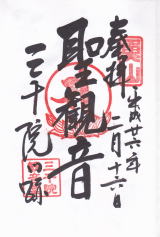 奉拝
平成廿六年
二月十六日
聖観音
三千院